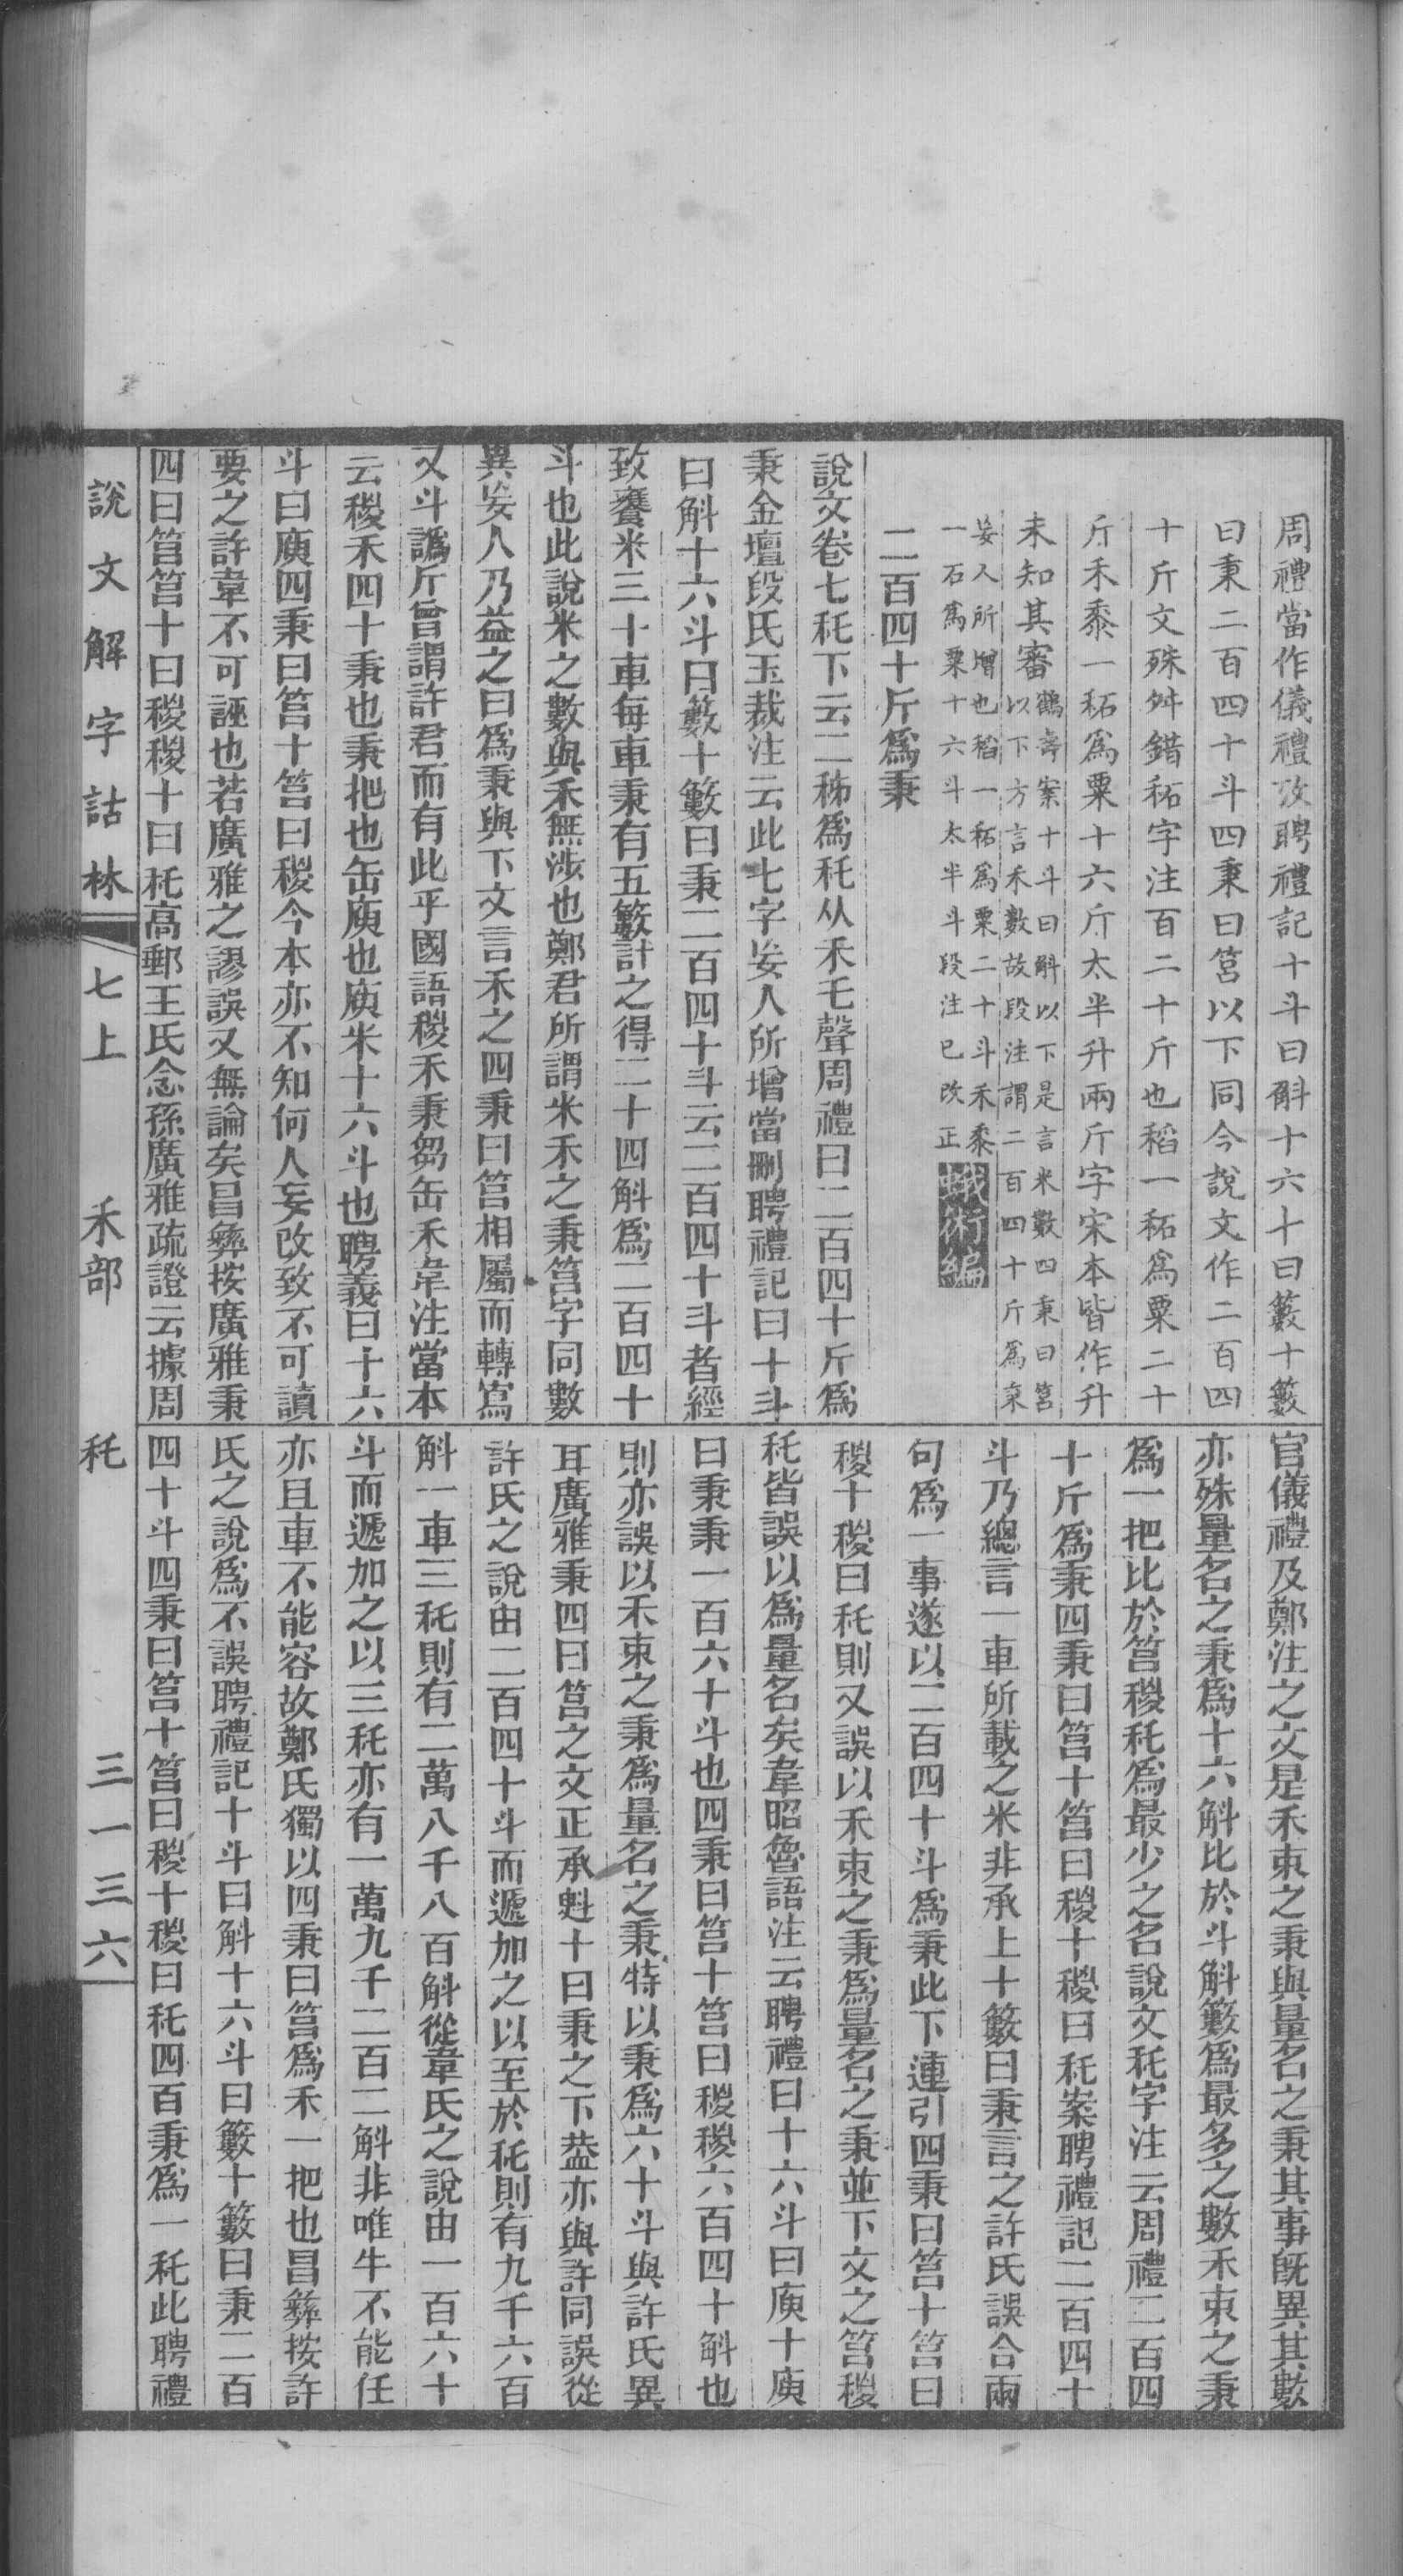 周禮當作儀禮攷聘禮記十斗曰斛十六斗曰籔十籔
曰秉二百四十斗四秉曰筥以下同今說文作二百四
十斤文殊舛錯䄷字注百二十斤也稻一䄷爲粟二十
斤禾黍一䄷爲粟十六斤太半升兩斤字宋本皆作升
未知其審鶴壽案十斗曰斛以下是言米數四秉曰筥
以下方言禾數故段注謂二百四十斤爲秉
妄人所增也稻一䄷爲粟二十斗禾黍
一石爲粟十六斗太半斗段注已改正蛾術編
二百四十斤爲秉
說文卷七秅下云二秭爲秅从禾乇聲周禮曰二百四十斤爲
秉金壇段氏玉裁注云此七字妄人所增當刪聘禮記曰十斗
曰斛十六斗曰籔十籔曰秉二百四十斗云二百四十斗者經
致饔米三十車每車秉有五籔計之得二十四斛爲二百四十
斗也此說米之數與禾無涉也鄭君所謂米禾之秉筥字同數
異妄人乃益之曰爲秉與下文言禾之四秉曰筥相屬而轉寫
又斗譌斤曾謂許君而有此乎國語稯禾秉芻缶禾韋注當本
云稯禾四十秉也秉把也缶庾也庾米十六斗也聘義曰十六
斗曰庾四秉曰筥十筥曰稯今本亦不知何人妄改致不可讀
要之許韋不可誣也若廣雅之謬誤又無論矣昌彝按廣雅秉
四曰筥筥十曰稯稯十曰秅高郵王氏念孫廣雅疏證云據周
官儀禮及鄭注之文是禾束之秉與量名之秉其事旣異其數
亦殊量名之秉爲十六斛比於斗斛籔爲最多之數禾束之秉
爲一把比於筥稯秅爲最少之名說文秅字注云周禮二百四
十斤爲秉四秉曰筥十筥曰稯十稯曰秅案聘禮記二百四十
斗乃總言一車所載之米非承上十籔曰秉言之許氏誤合兩
句爲一事遂以二百四十斗爲秉此下連引四秉曰筥十筥曰
稯十稯曰秅則又誤以禾束之秉爲量名之秉並下文之筥稯
秅皆誤以爲量名矣韋昭魯語注云聘禮曰十六斗曰庾十庾
曰秉秉一百六十斗也四秉曰筥十筥曰稯稯六百四十斛也
則亦誤以禾束之秉爲量名之秉特以秉爲六十斗與許氏異
耳廣雅秉四曰筥之文正承𣁬十曰秉之下葢亦與許同誤從
許氏之說由二百四十斗而遞加之以至於秅則有九千六百
斛一車三秅則有二萬八千八百斛從韋氏之說由一百六十
斗而遞加之以三秅亦有一萬九千二百二斛非唯牛不能任
亦且車不能容故鄭氏獨以四秉曰筥爲禾一把也昌彝按許
氏之說爲不誤聘禮記十斗曰斛十六斗曰籔十籔曰秉二百
四十斗四秉曰筥十筥曰稯十稯曰秅四百秉爲一秅此聘禮
說文解字詁林 七上 禾部 秅 三一三六